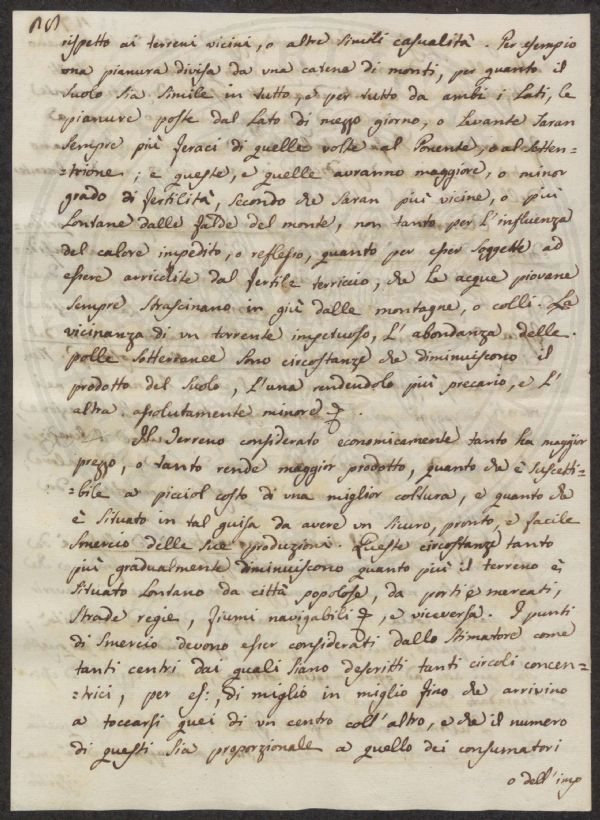 rispetto ai terreni vicini, o altre simili casualità. Per esempio
una pianura divisa da una catena di monti, per quanto il
suolo sia simile in tutto, e per tutto da ambi i Lati, le
pianure poste dal Lato di mezzo giorno, o Levante saran
sempre più feraci di quelle volte al Ponente, o al Setten=
=trione; e queste, e quelle avranno maggiore, o minor
grado di fertilità, secondo che saran più vicine, o più
Lontane dalle falde del monte, non tanto per L'influenza
del calore impedito, o reflesso, quanto per esser soggette ad
essere arricchite dal fertile terriccio, che Le acque piovane
sempre strascinano in giù dalle montagne, o colli. La
vicinanza di un torrente impetuoso, L'abondanza delle
polle sotterranee sono circostanze che diminuiscono il
prodotto del suolo, L'una rendendolo più precario, e L'
altra assolutamente minore.
Il Terreno considerato economicamente tanto ha maggior
prezzo, o tanto rende maggior prodotto, quanto che è suscetti=
=bile a picciol costo di una miglior coltura, e quanto che
è situato in tal guisa da avere un sicuro, pronto, e facile
smercio delle sue produzioni. Queste circostanze tanto
più gradualmente diminuiscono quanto più il terreno è
situato Lontano da città popolose, da porti e mercati,
strade regie, fiumi navigabili, e viceversa. I punti
di smercio devono esser considerati dallo stimatore come
tanti centri dai quali siano descritti tanti circoli concen=
=trici, per es:, di miglio in miglio fino che arrivino
a toccarsi quei di un centro coll'altro, e che il numero
di questi sia proporzionale a quello dei consumatori
o dell'imp